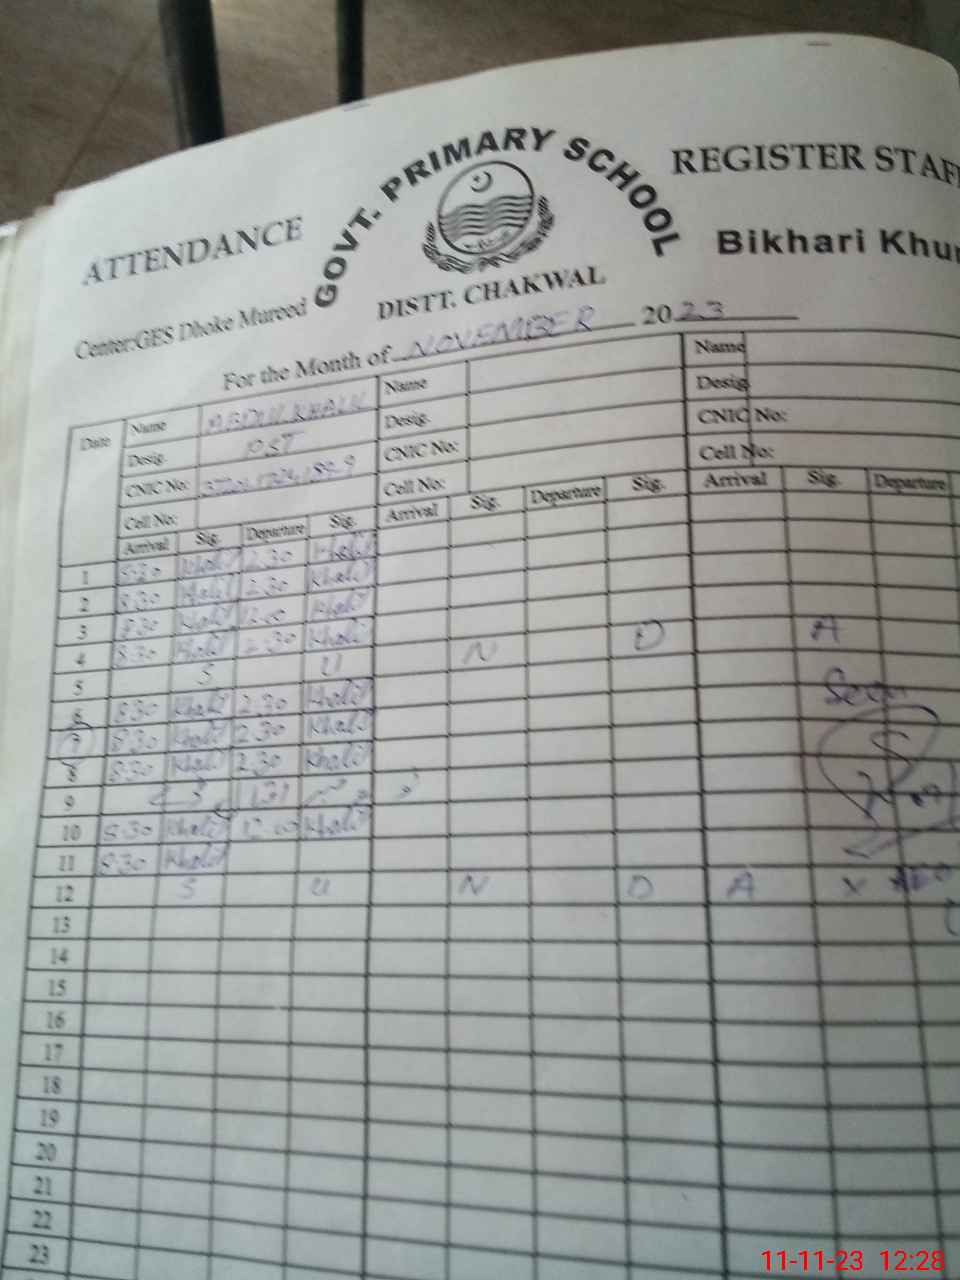 GOVT. PRIMARY SCHOOL
ATTENDANCE REGISTER STAFF
Bikhari Khur
DISTT. CHAKWAL
Center:GES Dhoke Mureed
For the Month of NOVEMBER 2023
Date Name Name Name
Desig. PST Desig. Desig.
CNIC No: CNIC No: CNIC No:
Cell No: Cell No: Cell No:
Arrival Sig. Departure Sig. Arrival Sig. Departure Sig. Arrival Sig. Departure
1 8:30 Khalil 2.30 Khalil
2 8:30 Khalil 2.30 Khalil
3 8:30 Khalil 12.00 Khalil
4 8:30 Khalil 2.30 Khalil
5 S U N D A
6 8:30 Khalil 2.30 Khalil
7 8:30 Khalil 2.30 Khalil
8 8:30 Khalil 2.30 Khalil
9
10 8:30 Khalil 12.00 Khalil
11 8:30 Khalil
12 S U N D A Y AEO
13
14
15
16
17
18
19
20
21
22
23
11-11-23 12:28